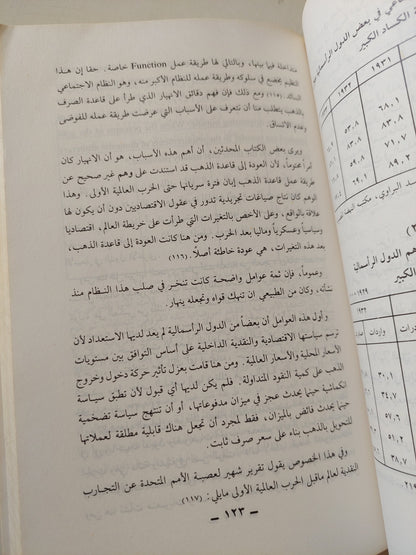 متداخلة فيما بينها، وبالتالي لها طريقة عمل Function خاصة. حقا إن هذا
التنظيم يخضع في سلوكه وطريقة عمله للنظام الأكبر منه، وهو النظام الاجتماعي
السائد. (١١٥) ومع ذلك فإن فهم دقائق الانهيار الذي طرأ على قاعدة الصرف
بالذهب يتطلب منا أن نتعرف على الأسباب التي عرضت طريقة عمله للفوضى
وعدم الاتساق.
ويرى بعض الكتاب المحدثين، أن أهم هذه الأسباب، هو أن الانهيار كان
أمراً محتوماً، لأن العودة إلى قاعدة الذهب قد استندت على وهم غير صحيح عن
طريقة عمل قاعدة الذهب إبان فترة سريانها حتى الحرب العالمية الأولى. وهذا
الوهم كان نتاج صياغات تجريدية تدور في عقول الاقتصاديين دون أن يكون لها
علاقة بالواقع، وعلى الأخص بالتغيرات التي طرأت على خريطة العالم، اقتصاديا
وسياسياً وعسكرياً وماليا بعد الحرب. ومن هنا كانت العودة إلى قاعدة الذهب،
بعد هذه التغيرات، هي عودة خاطئة أصلاً. (١١٦)
وعموماً، فإن ثمة عوامل واضحة كانت تنخر في صلب هذا النظام منذ
نشأته، وكان من الطبيعي ان تنهك قواه وتجعله ينهار.
وأول هذه العوامل أن بعضاً من الدول الرأسمالية لم يعد لديها الاستعداد لأن
ترسم سياستها الاقتصادية والنقدية الداخلية على أساس التوافق بين مستويات
الأسعار المحلية والأسعار العالمية. ومن هنا قامت بعزل تأثير حركة دخول وخروج
الذهب على كمية النقود المتداولة. فلم يكن لديها أي قبول لأن تطبق سياسة
انكماشية حينما يحدث عجز في ميزان مدفوعاتها، أو أن تنتهج سياسة تضخمية
حينما يحدث فائض بالميزان، فقط لمجرد أن تجعل هناك قابلية مطلقة لعملاتها
للتحويل بالذهب بناء على سعر صرف ثابت.
وفي هذا الخصوص يقول تقرير شهير لعصبة الأمم المتحدة عن التجارب
النقدية لعالم ماقبل الحرب العالمية الأولى مايلي: (١١٧)
— ١٢٣ —
في بعض الدول الرأسمالية
الكساد الكبير
١٩٣١
١٩٣٢
٦٨,١
٨٣,٨
٧١,٧
٨٩,٢
٥٣,٨
البراوي، مكتبة النهضة
(٢)
هم الدول الرأسمالية
الكبير
واردات
٣٠,١
٣٤,٧
٥٧,٦